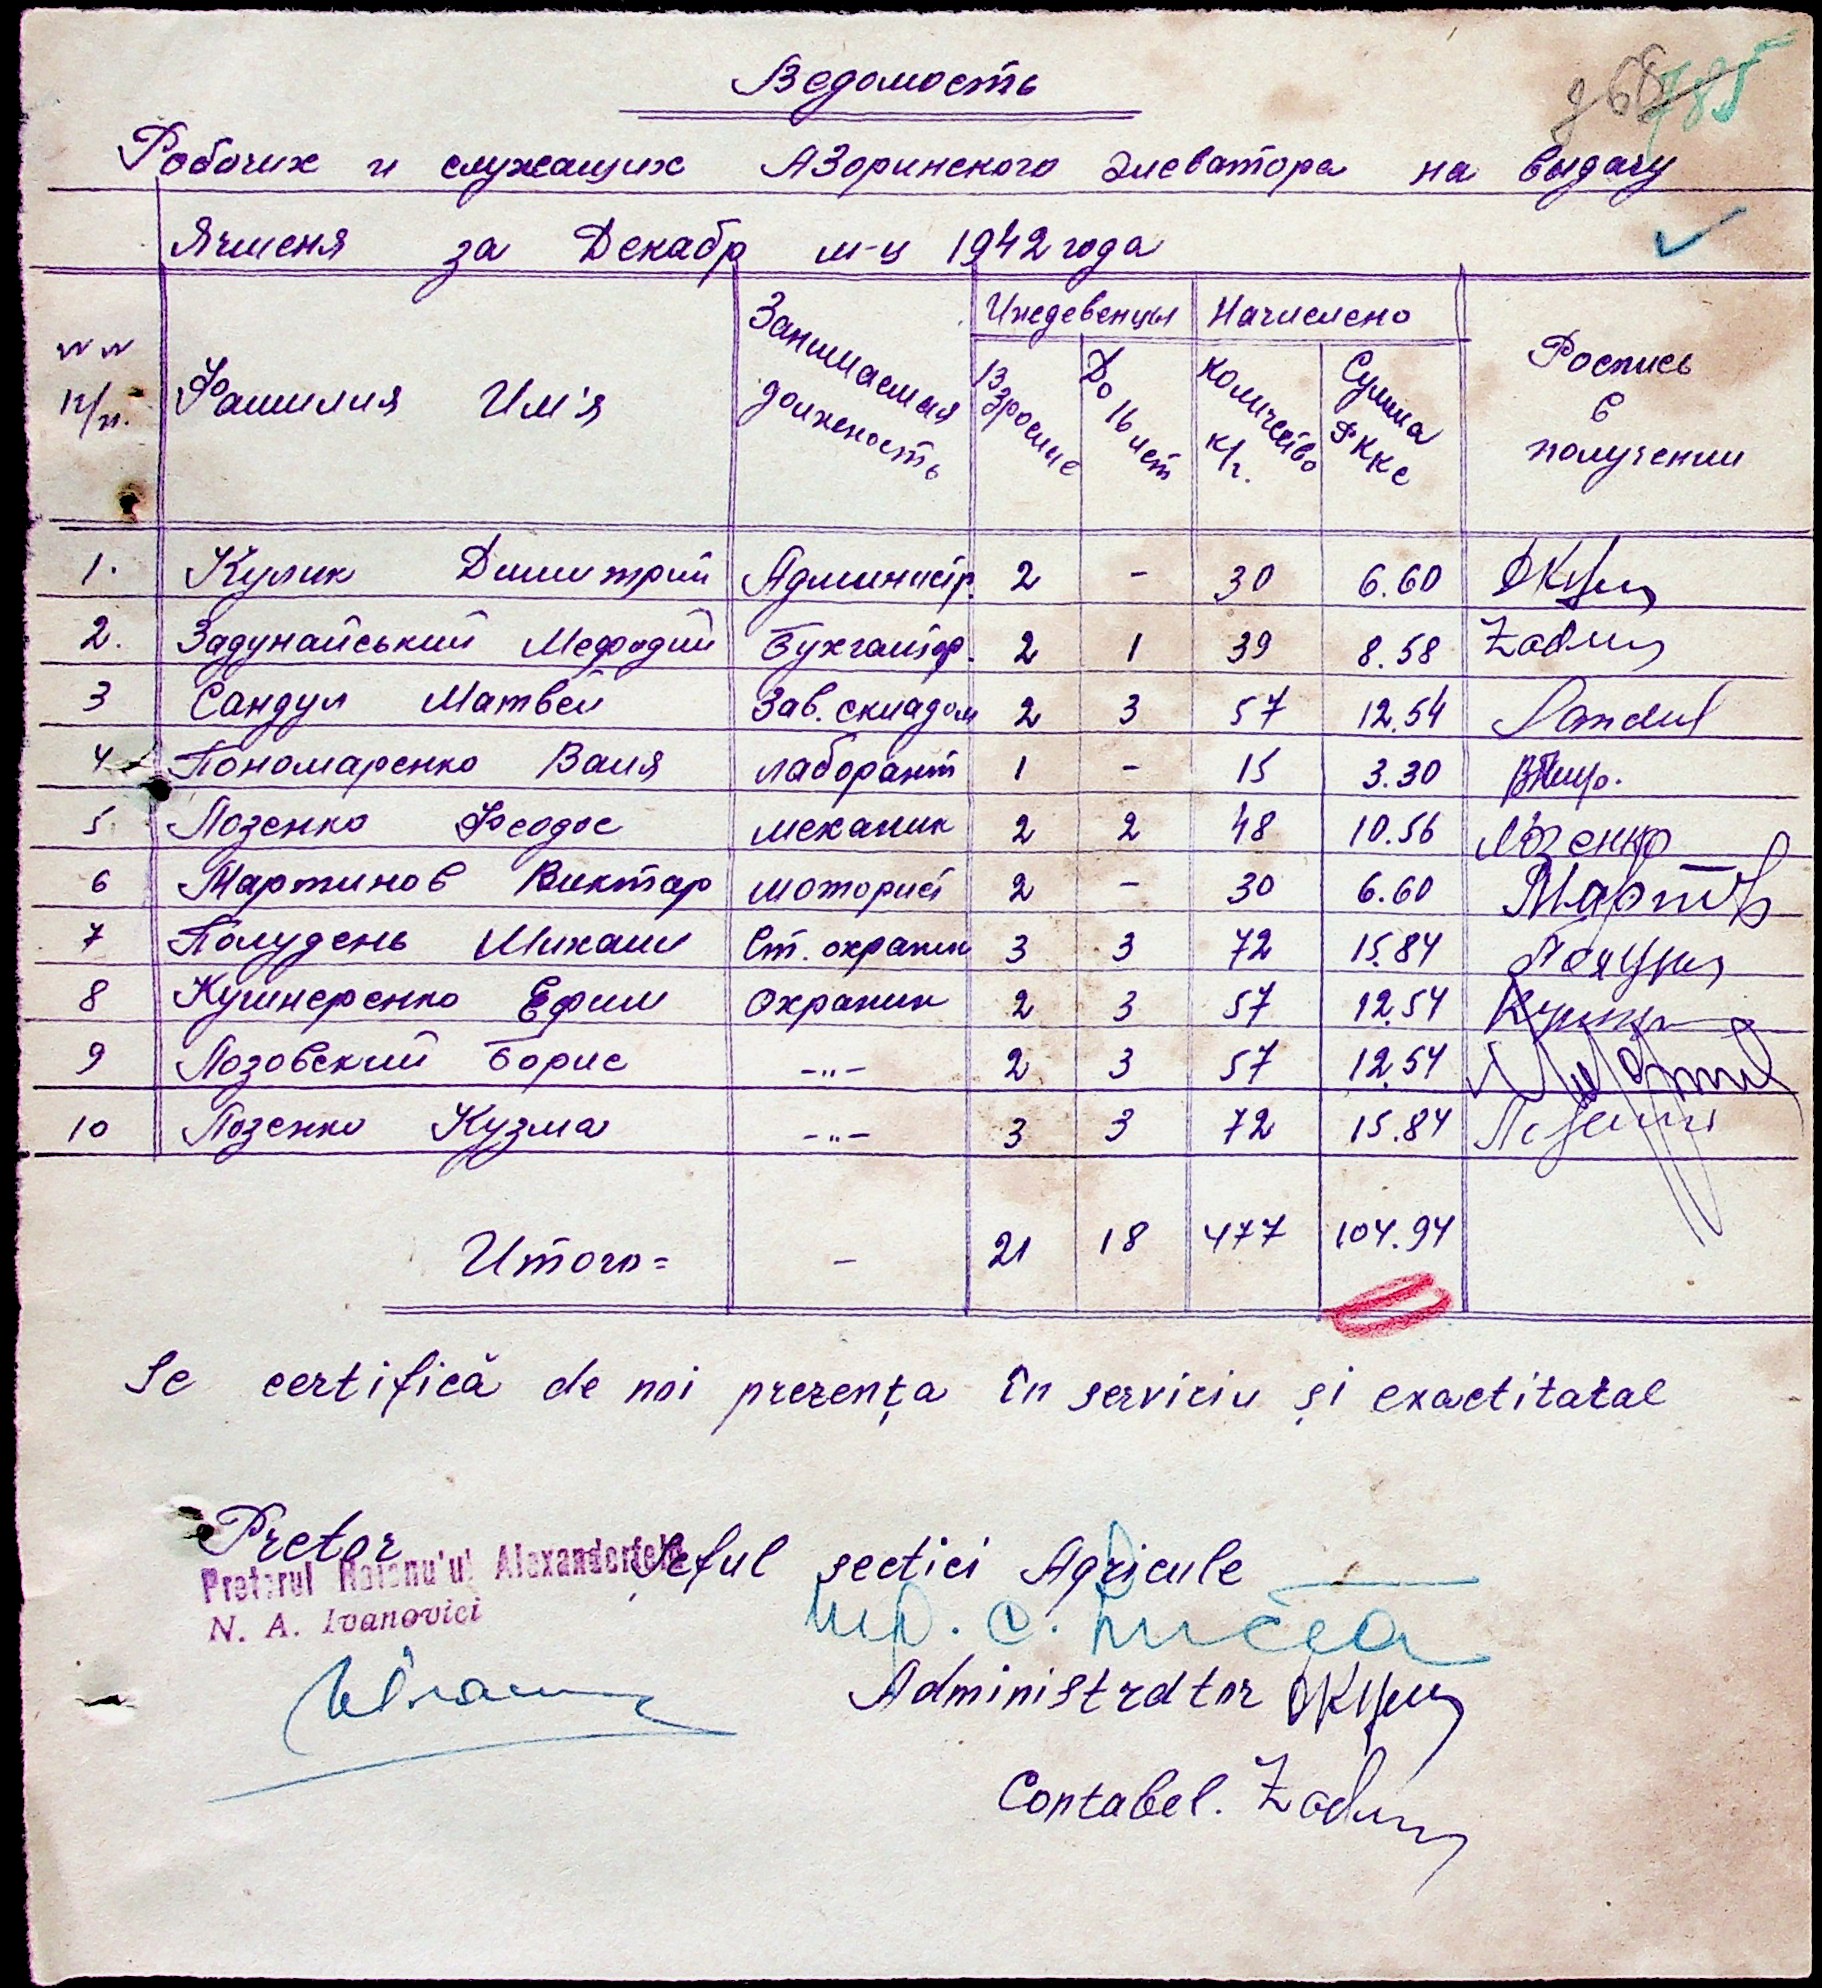 785
Ведомость
Робочих и служащих Азоринского элеватора на выдачу
Ячменя за Декабр м-ц 1942 года
№ № п/п. Фамилия Им'я Занимаемая должность Иждевенцы Взрослые До 16 лет Начислено Количество к/г. Сумма РККС Роспись в получении
1. Кулик Димитрий Администр. 2 - 30 6.60
2. Задунайський Мефодий Бухгалтер. 2 1 39 8.58 Zadun
3 Сандул Матвей Зав. складом 2 3 57 12.54 Sandul
4 Пономаренко Валя лаборант 1 - 15 3.30
5 Лозенко Феодос механик 2 2 48 10.56 Лозенко
6 Мартинов Виктар моторист 2 - 30 6.60
7 Полудень Михаил Ст. охраник 3 3 72 15.84
8 Кушнеренко Ефим Охраник 2 3 57 12.54
9 Лозовский Борис -"- 2 3 57 12.54
10 Лозенко Кузма -"- 3 3 72 15.84
Итого = - 21 18 477 104.94
Se certifică de noi prezența în serviciu și exactitatal
Pretor Șeful secției Agricule
Pretorul Raionului Alexanderfeld
N. A. Ivanovici
Administrator
Contabel. Zadun